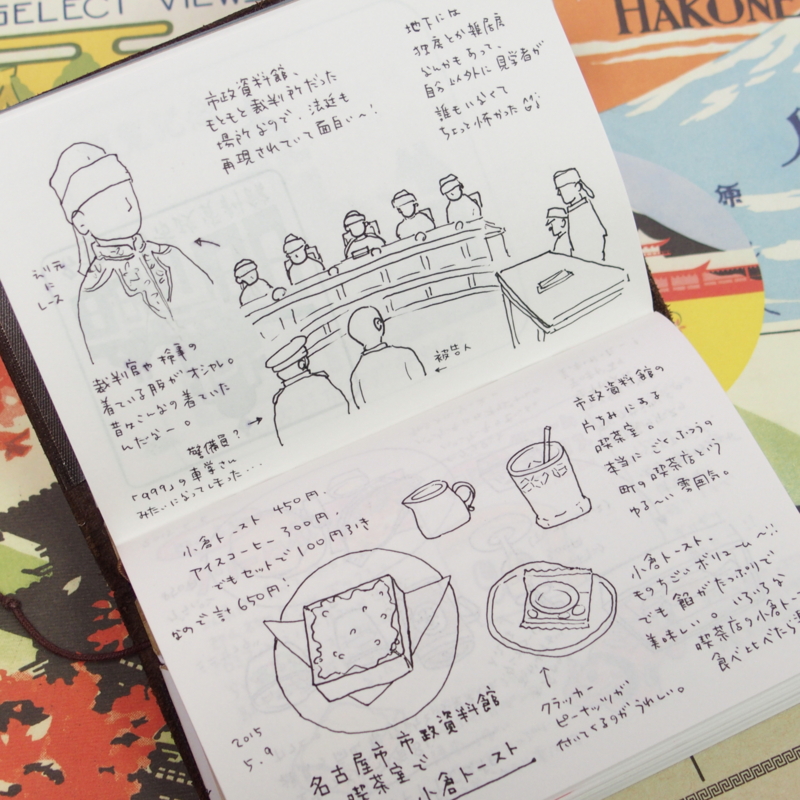 SELECT VIEWS
HAKONE
市政資料館、
もともと裁判所だった
場所なので、法廷も
再現されていて面白い〜!
地下には
独房とか雑居房
なんかもあって、
自分以外に見学者が
誰もいなくて
ちょっと怖かった
えり元
に
レース
裁判官や検事の
着ている服がオシャレ。
昔々こんなの着ていた
んだなー。
警備員?
「999」の車掌さん
みたいになってしまった…
被告人
市政資料館の
片すみにある
喫茶室。
本当にごくふつうの
町の喫茶店という
ゆる〜い雰囲気。
小倉トースト 450円、
アイスコーヒー 300円、
でもセットで100円引き
なので計650円!
小倉トースト、
ものすごいボリューム〜
でも餡がたっぷりで
美味しい。いろいろな
喫茶店の小倉トー
食べ比べたら
クラッカー
ピーナッツが
付いてくるのがうれしい。
2015
5.9
名古屋市市政資料館
喫茶室で
小倉トースト